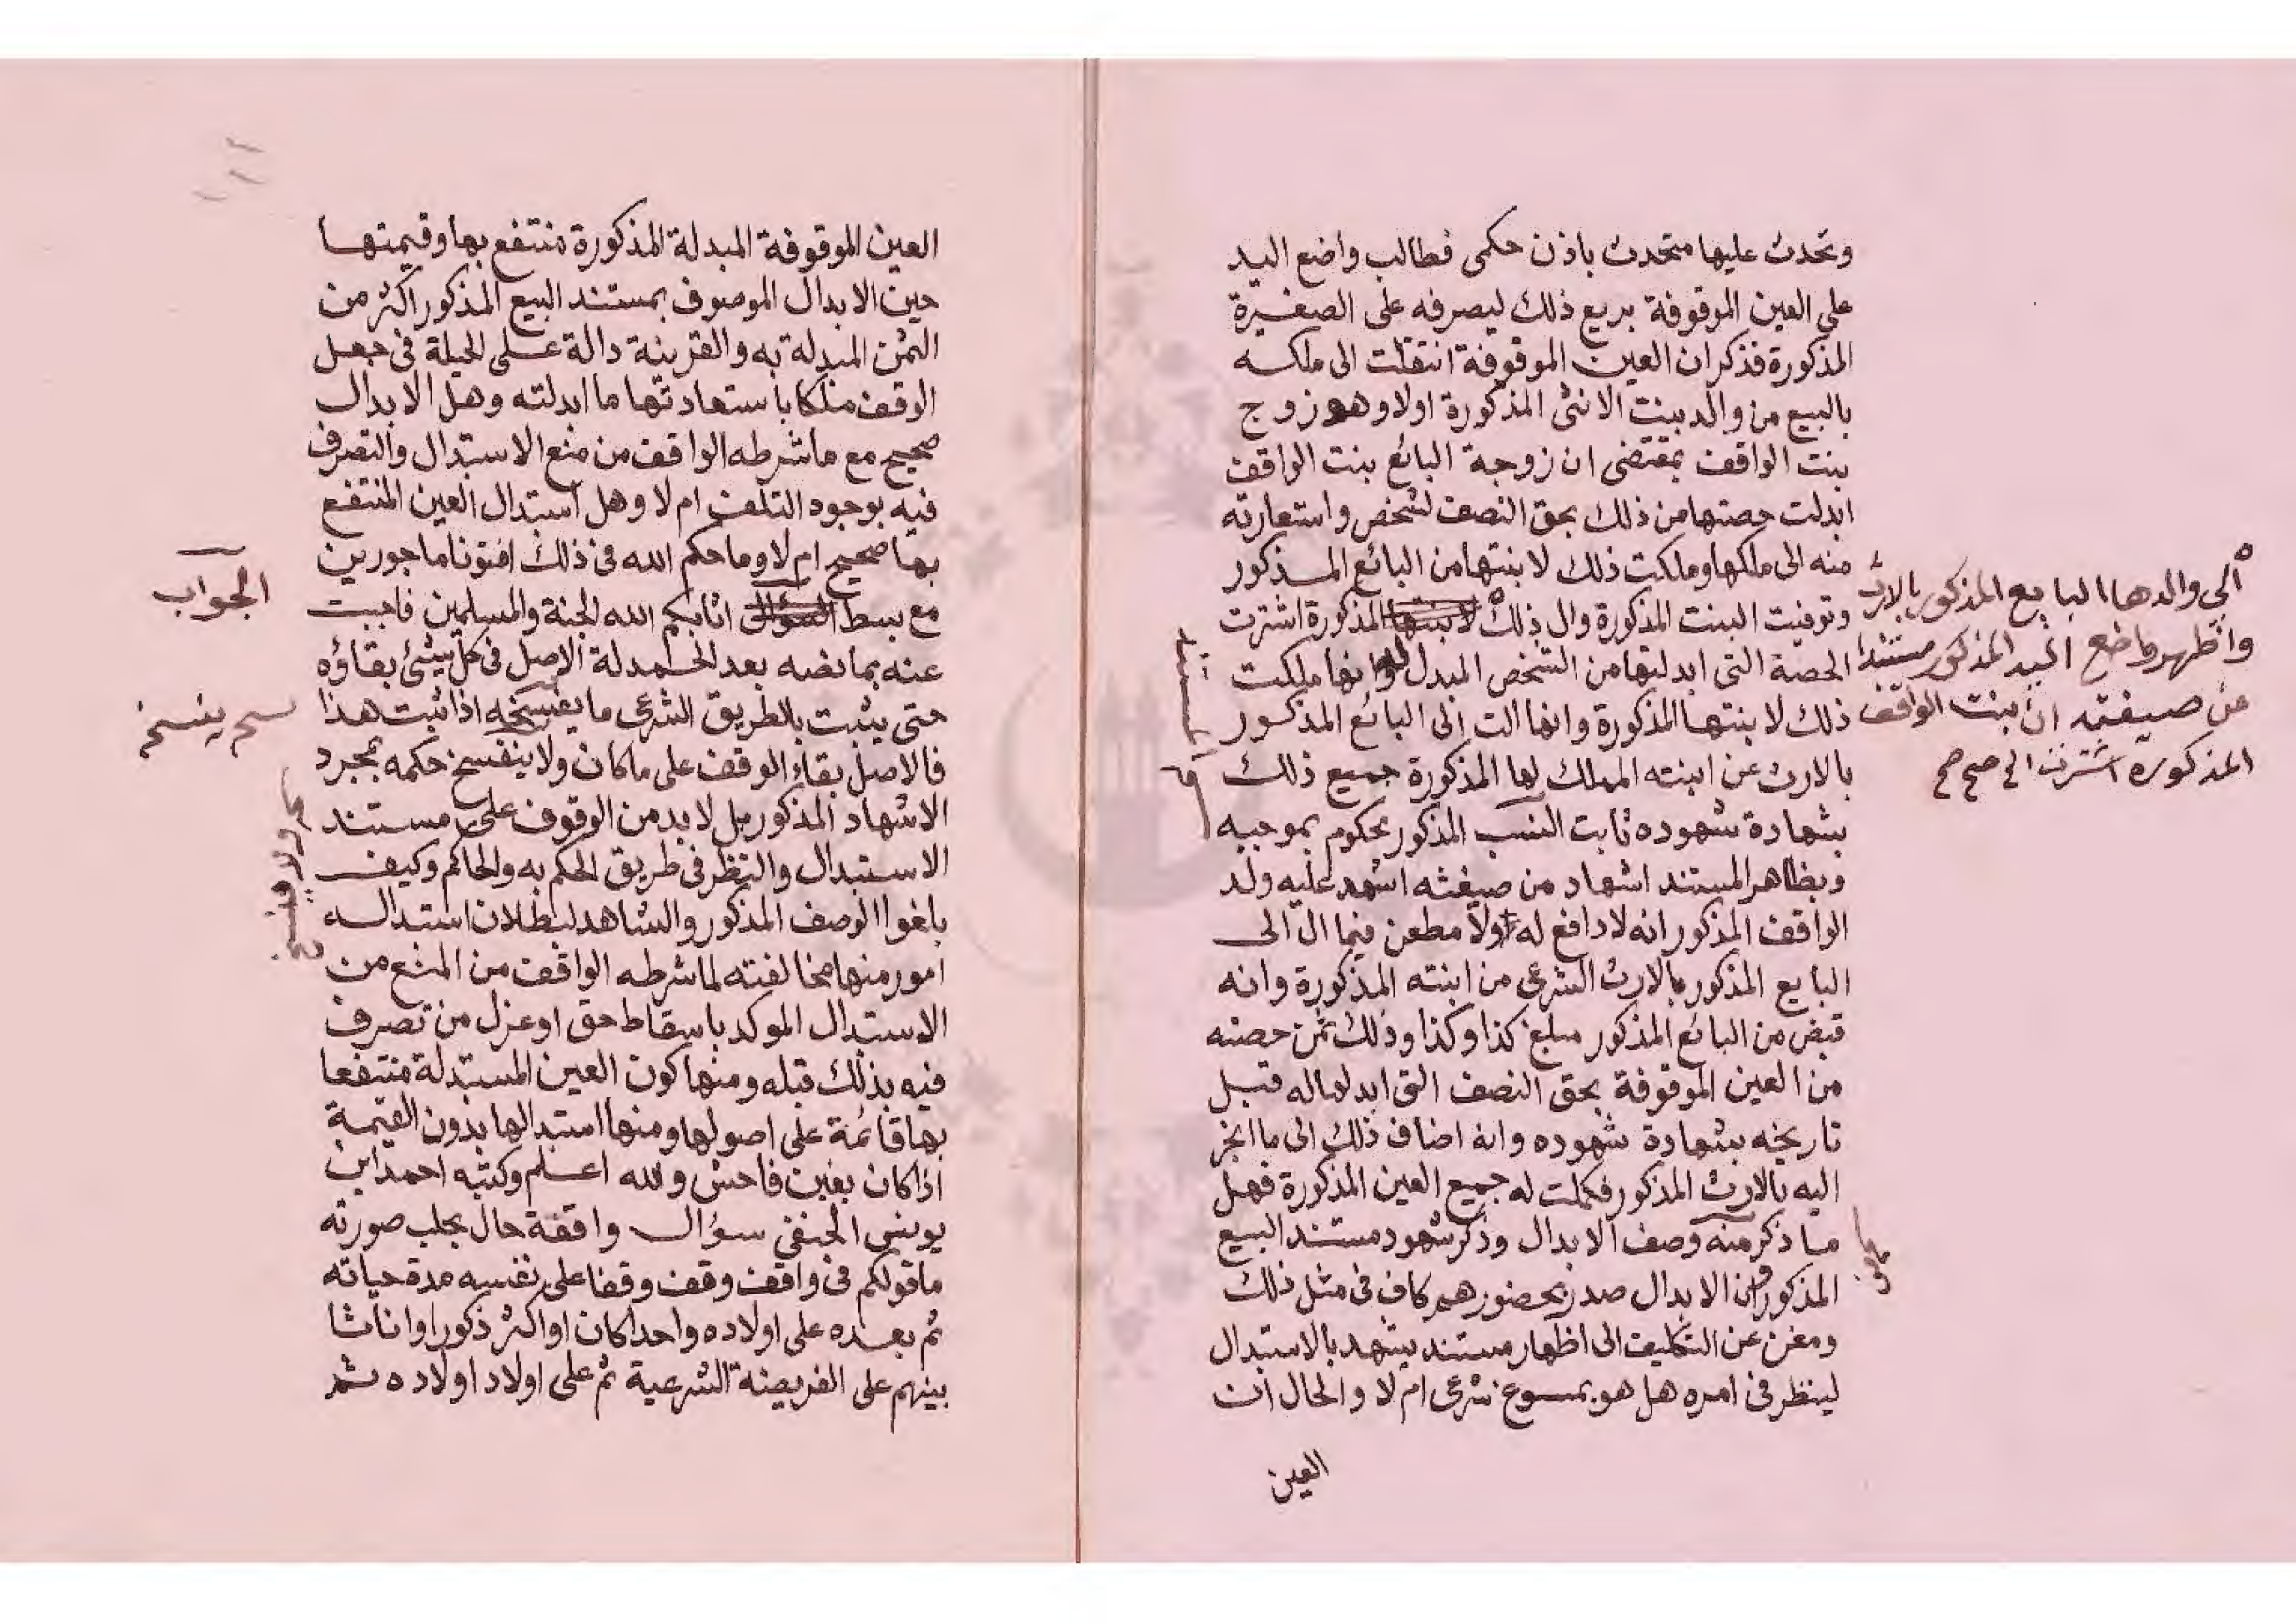 وتحدث عليها متحدث باذن حكمى فطالب واضع اليد
على العين الموقوفة بريع ذلك ليصرفه على الصغيرة
المذكورة فذكر ان العين الموقوفة انتقلت الى ملكه
بالبيع من والد بنت الانثى المذكورة اولا وهو زوج
بنت الواقف بمقتضى ان زوجة البائع بنت الواقف
ابدلت حصتها من ذلك بحق النصف لشخص واستعارته
منه الى ملكها وملكت ذلك لابنتها من البائع المذكور
وتوفيت البنت المذكورة وال ذلك لابنتها المذكورة اشترت
الحصة التى ابدلتها من الشخص المبدل له وانها ملكت
ذلك لابنتها المذكورة وانها الت الى البائع المذكور
بالارث عن ابنته المملك لها المذكورة جميع ذلك
بشهادة شهوده ثابت النسب المذكور محكوم بموجبه
وبظاهر المستند اشهاد من صيغته اشهد عليه ولد
الواقف المذكور انه لا دافع له ولا مطعن فيما ال الى
البايع المذكور بالارث الشرعى من ابنته المذكورة وانه
قبض من البائع المذكور مبلغ كذا وكذا وذلك ثمن حصته
من العين الموقوفة بحق النصف التى ابدلها له قبل
تاريخه بشهادة شهوده وانه اضاف ذلك الى ما انجز
اليه بالارث المذكور فكملت له جميع العين المذكورة فهل
ما ذكر منه وصف الابدال وذكر شهود مستند البيع
المذكور ان الابدال صدر بحضورهم كاف فى مثل ذلك
ومغن عن التكليف الى اظهار مستند يشهد بالاستبدال
لينظر فى امره هل هو بمسوغ شرعى ام لا والحال ان
العين
الى والدها البايع المذكور بالارث
واظهر واضع اليد المذكور مستندا
من صيغته ان بنت الواقف
المذكورة اشترت الى صح صح
العين الموقوفة المبدلة المذكورة منتفع بها وقيمتها
حين الابدال الموصوف بمستند البيع المذكور اكثر من
الثمن المبدلة به والقرينة دالة على الحيلة فى جعل
الوقف ملكا باستعادتها ما ابدلته وهل الابدال
صحيح مع ما شرطه الواقف من منع الاستبدال والتصرف
فيه بوجود التلف ام لا وهل استبدال العين المنتفع
بها صحيح ام لا وما حكم الله فى ذلك افتونا ماجورين
مع بسط السؤال اثابكم الله الجنة والمسلمين فاجبت
عنه بما نصه بعد الحمدلة الاصل فى كل شيئ بقاؤه
حتى يثبت بالطريق الشرعى ما يفسخه اذا ثبت هذا
فالاصل بقاء الوقف على ما كان ولا ينفسخ حكمه بمجرد
الاشهاد المذكور بل لا بد من الوقوف على مستند
الاستبدال والنظر فى طريق الحكم به والحاكم وكيف
بلغوا الوصف المذكور والشاهد لبطلان استبداله
امور منها مخالفته لما شرطه الواقف من المنع من
الاستبدال الموكد باسقاط حق او عزل من تصرف
فيه بذلك قبله ومنها كون العين المستبدلة منتفعا
بها قائمة على اصولها ومنها استبدالها بدون القيمة
اذا كان بغبن فاحش والله اعلم وكتبه احمد ابن
يونس الحنفي سؤال واقعة حال بحلب صورته
ما قولكم فى واقف وقف وقفا على نفسه مدة حياته
ثم بعده على اولاده واحدا كان او اكثر ذكورا او اناثا
بينهم على الفريضة الشرعية ثم على اولاد اولاده ثم
الجواب
ينسخ